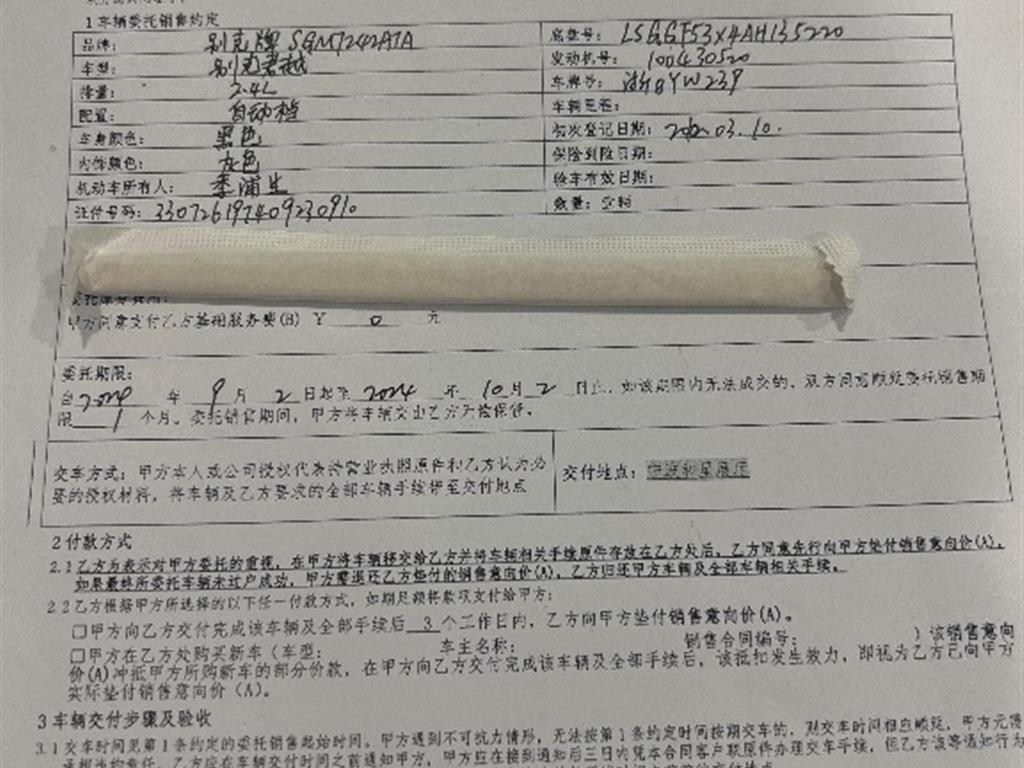 1 车辆委托销售约定
品牌: 别克牌 SGM7242ATA 底盘号: LSGGF53X4AH135220
车型: 别克君越 发动机号: 100430520
排量: 2.4L 车牌号: 浙BYW239
配置: 自动档 车辆里程:
车身颜色: 黑色 初次登记日期: 03.10.
内饰颜色: 灰色 保险到险日期:
机动车所有人: 季浦生 验车有效日期:
证件号码: 330726197409230910 数量:
甲方同意支付乙方基础服务费(B) ¥ 0 元
委托期限:
自 2024 年 9 月 2 日起至 2024 年 10 月 2 日止, 如该期限内无法成交的, 双方同意顺延委托销售期
限 1 个月。委托销售期间, 甲方将车辆交由乙方无偿保管。
交车方式: 甲方本人或公司授权代表持营业执照原件和乙方认为必
要的授权材料, 将车辆及乙方要求的全部车辆手续带至交付地点
交付地点:
2 付款方式
2.1 乙方为表示对甲方委托的重视, 在甲方将车辆移交给乙方并将车辆相关手续原件存放在乙方处后, 乙方同意先行向甲方垫付销售意向价(A),
如果最终所委托车辆未过户成功, 甲方需退还乙方垫付的销售意向价(A), 乙方归还甲方车辆及全部车辆相关手续。
2.2 乙方根据甲方所选择的以下任一付款方式, 如期足额将款项支付给甲方:
□甲方向乙方交付完成该车辆及全部手续后 3 个工作日内, 乙方向甲方垫付销售意向价(A)。
□甲方在乙方处购买新车 (车型: 车主名称: 销售合同编号: ) 该销售意向
价(A)冲抵甲方所购新车的部分价款, 在甲方向乙方交付完成该车辆及全部手续后, 该抵扣发生效力, 即视为乙方已向甲方
实际垫付销售意向价 (A)。
3 车辆交付步骤及验收
3.1 交车时间见第 1 条约定的委托销售起始时间。甲方遇到不可抗力情形, 无法按第 1 条约定时间按期交车的, 则交车时间相应顺延, 甲方无须
承担违约责任。乙方应在车辆交付时间之前通知甲方, 甲方应在接到通知后三日内凭本合同客户联原件办理交车手续, 但乙方该等通知行为